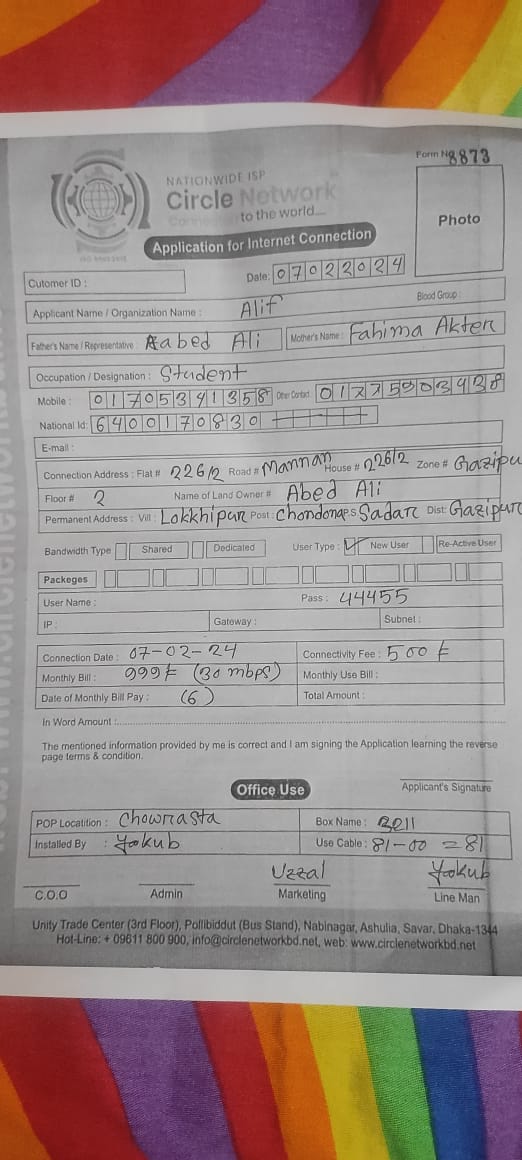 Form No 8873
NATIONWIDE ISP
Circle Network
to the world....
Photo
Application for Internet Connection
Cutomer ID :
Date: 07022024
Applicant Name / Organization Name : Alif
Blood Group :
Father's Name / Representative : Aabed Ali Mother's Name : Fahima Akter
Occupation / Designation : Student
Mobile : 01705341358 Other Contact
National Id: 6400170830
E-mail :
Connection Address : Flat # 226/2 Road # Mannan House # 226/2 Zone # Gazipu
Floor # 2 Name of Land Owner # Abed Ali
Permanent Address : Vill : Lokkhipur Post : Chondona P.S Sadar Dist: Gazipur
Bandwidth Type Shared Dedicated User Type : ✓ New User Re-Active User
Packeges
User Name : Pass : 44455
IP : Gateway : Subnet :
Connection Date : 07-02-24 Connectivity Fee : 500 ৳
Monthly Bill : 999 ৳ (30 mbps) Monthly Use Bill :
Date of Monthly Bill Pay : (6) Total Amount :
In Word Amount :
The mentioned information provided by me is correct and I am signing the Application learning the reverse
page terms & condition.
Office Use
Applicant's Signature
POP Locatition : Chowrasta Box Name : 3211
Installed By : Yookub Use Cable : 81-00 = 81
Uzzal Yookub
C.O.O Admin Marketing Line Man
Unity Trade Center (3rd Floor), Pollibiddut (Bus Stand), Nabinagar, Ashulia, Savar, Dhaka-1344
Hot-Line: + 09611 800 900, info@circlenetworkbd.net, web: www.circlenetworkbd.net